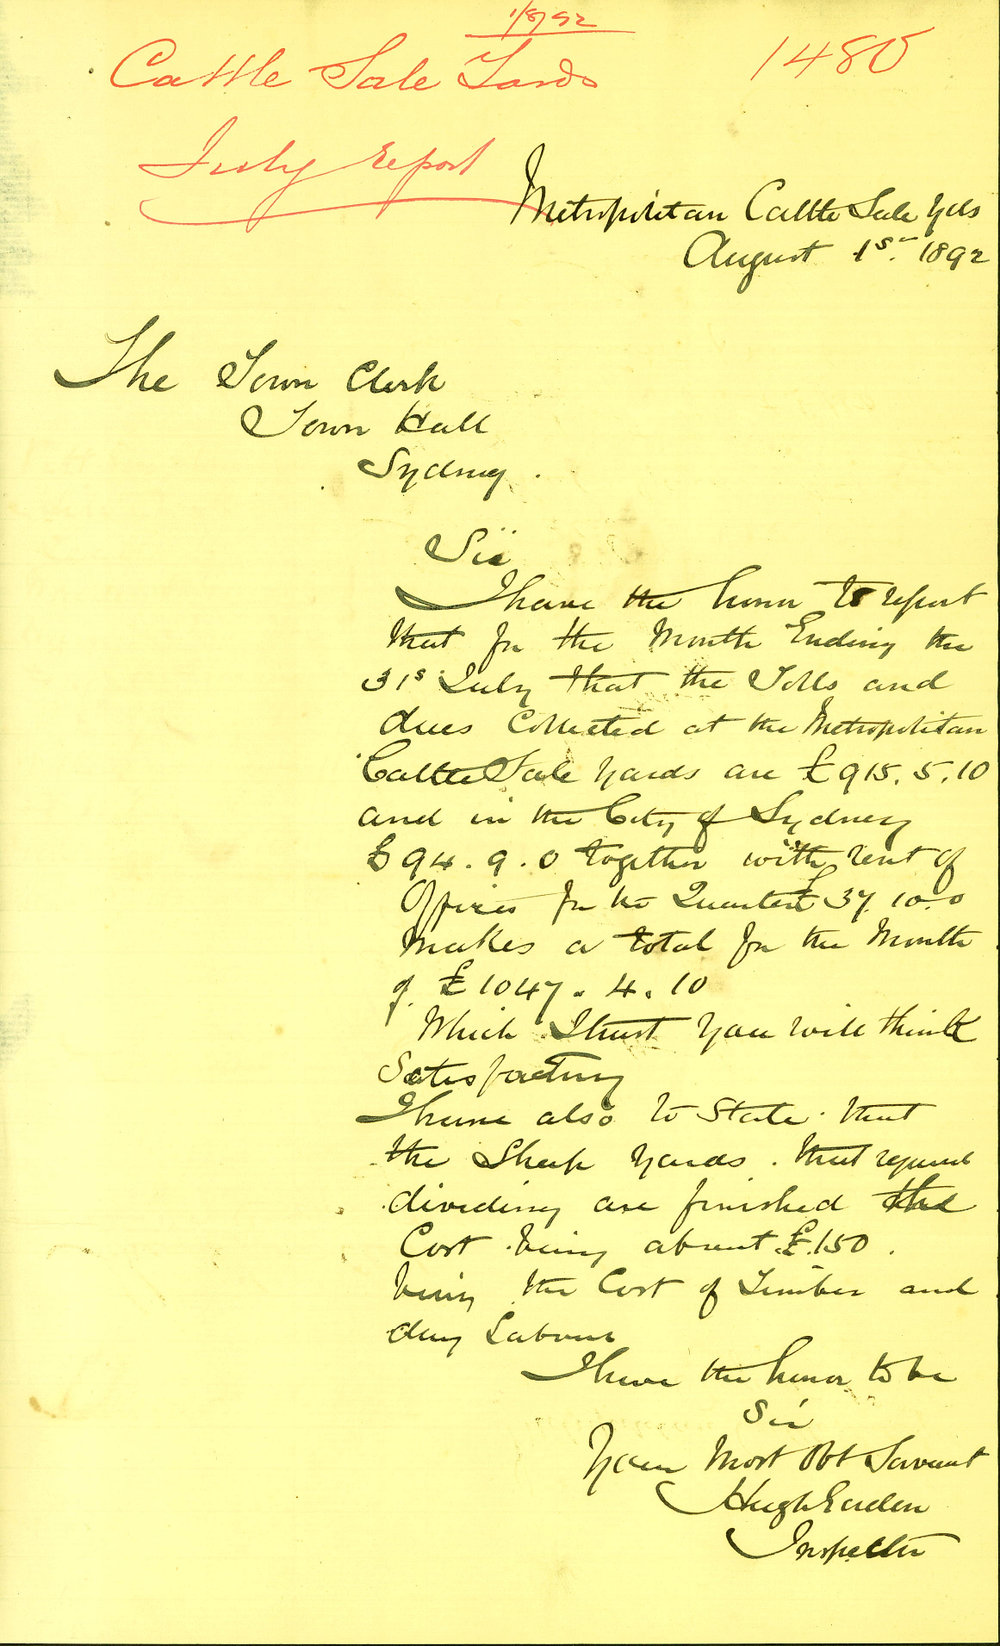 1/8/92
Cattle Sale Yards
1480
July report
Metropolitan Cattle Sale Yds
August 1st. 1892
The Town Clerk
Town Hall
Sydney.
Sir
I have the honor to report
that for the Month Ending the
31st July that the Tolls and
dues Collected at the Metropolitan
Cattle Sale Yards are £915.5.10
and in the City of Sydney
£94.9.0 together with rent of
Offices for the Quarter £37.10.0
Makes a total for the Month
of £1047.4.10
Which I trust you will think
Satisfactory
I have also to State that
the Sheep Yards that required
dividing are finished the
Cost being about £150.
being the Cost of Timber and
day Labour
I have the honor to be
Sir
Your Most Obt Servant
Hugh
Inspector